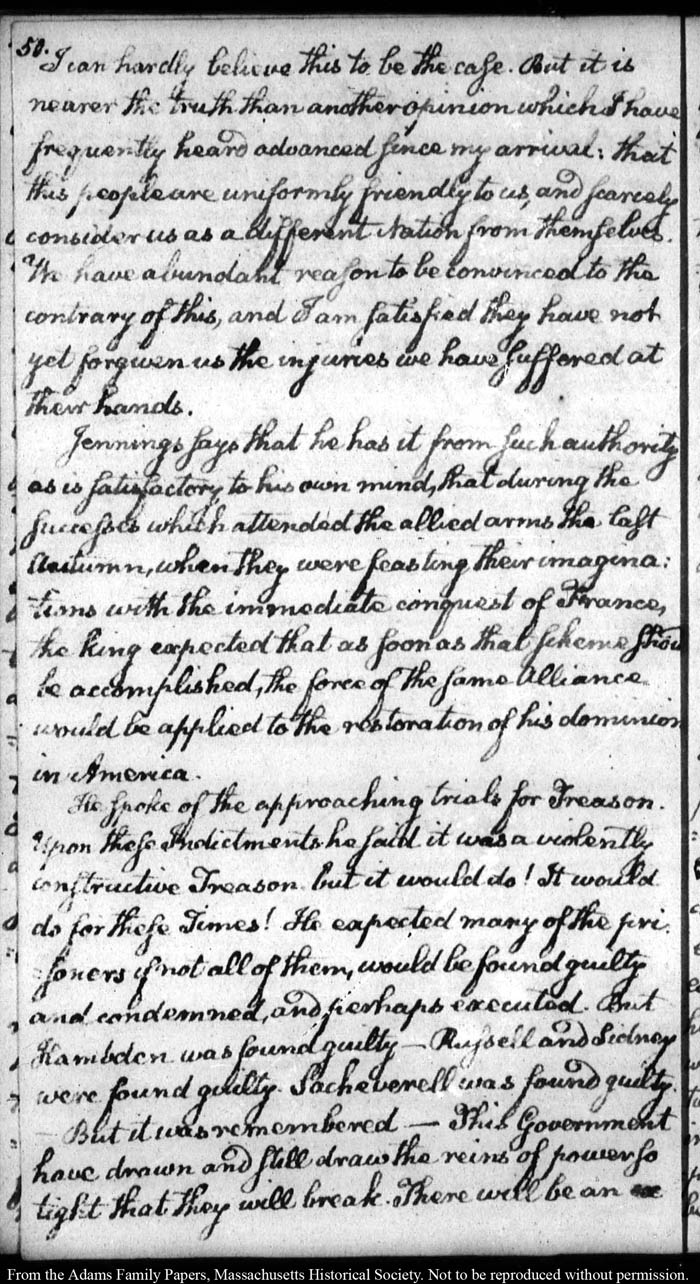 50.
I can hardly believe this to be the case. But it is
nearer the truth than another opinion which I have
frequently heard advanced since my arrival: that
this people are uniformly friendly to us, and scarcely
consider us as a different Nation from themselves.
We have abundant reason to be convinced to the
contrary of this, and I am satisfied they have not
yet forgiven us the injuries we have suffered at
their hands.
Jennings says that he has it from such authority
as is satisfactory to his own mind, that during the
successes which attended the allied arms the last
Autumn, when they were feasting their imagina:
tions with the immediate conquest of France,
the King expected that as soon as that scheme shou
be accomplished, the force of the same Alliance
would be applied to the restoration of his dominion
in America.
He spoke of the approaching trials for Treason.
Upon these Indictments he said it was a violently
constructive Treason but it would do! It would
do for these Times! He expected many of the pri:
soners if not all of them, would be found guilty
and condemned, and perhaps executed. But
Hambden was found guilty — Russell and Sidney
were found guilty. Sacheverell was found guilty.
— But it was remembered — This Government
have drawn and still draw the reins of power so
tight that they will break. There will be an
From the Adams Family Papers, Massachusetts Historical Society. Not to be reproduced without permission